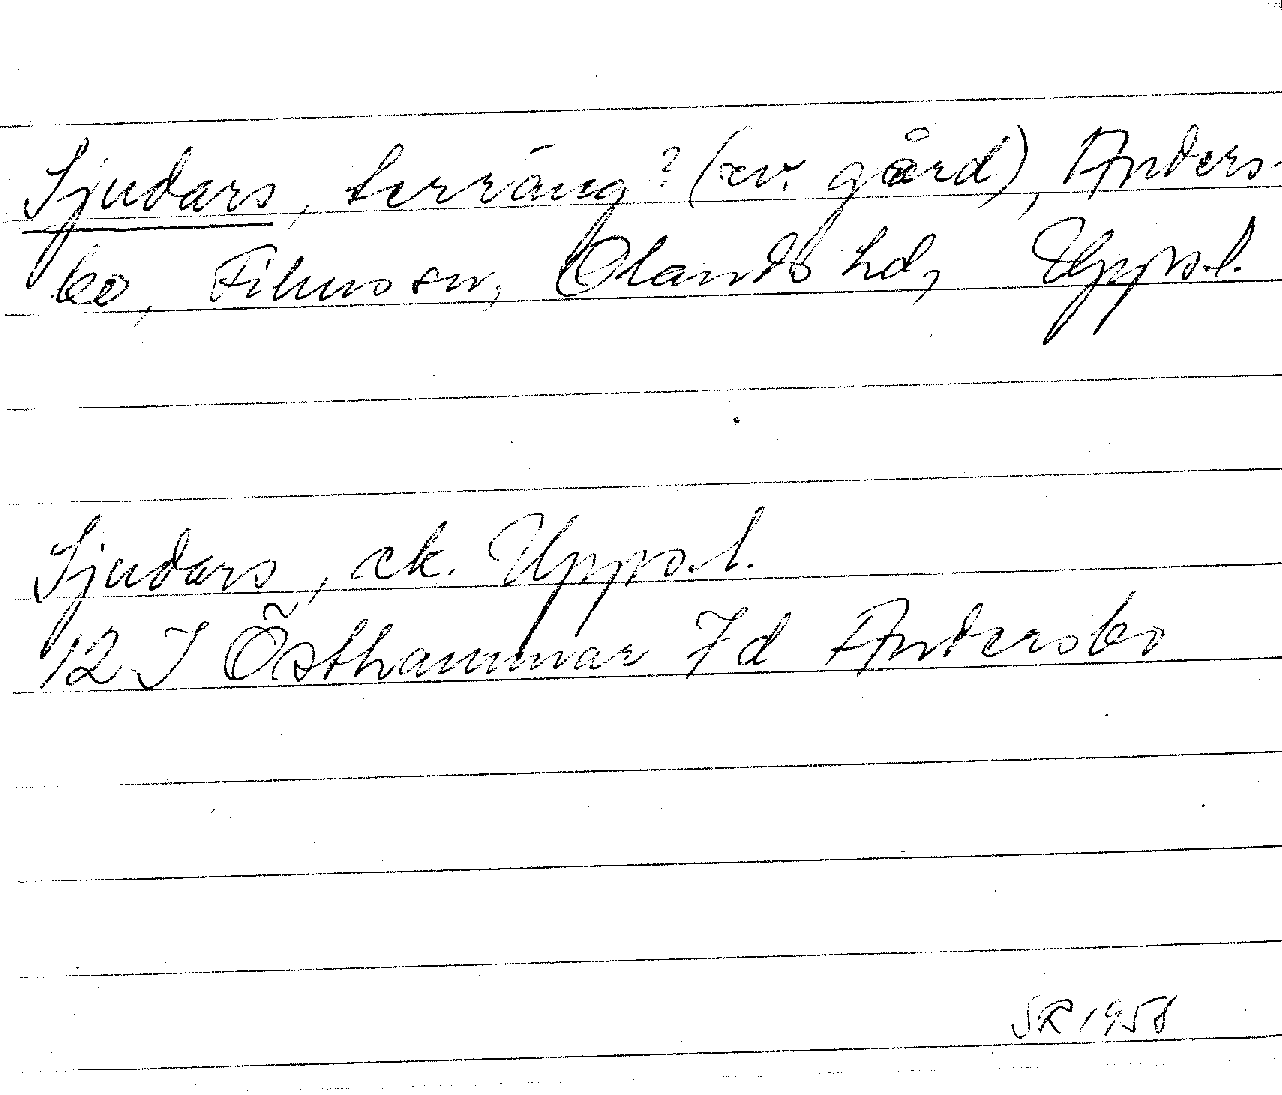 Sjudars, terräng? (ev. gård), Anders-
bo, Films sn, Olands hd, Upps.l.
Sjudars, ek. Upps.l.
12 I Östhammar 7d Andersbo
SR 1958